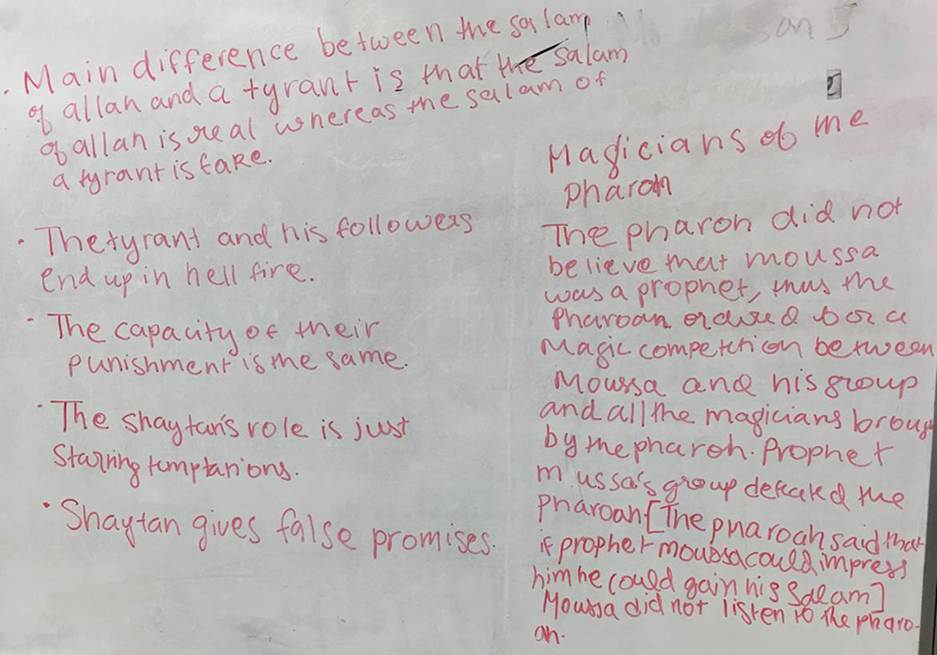 . Main difference between the salam
of allah and a tyrant is that the salam
of allah is real whereas the salam of
a tyrant is fake.
• The tyrant and his followers
end up in hell fire.
- The capacity of their
punishment is the same.
- The shaytan's role is just
starring temptations.
• Shaytan gives false promises.
Magicians of the
pharoh
The pharon did not
believe that moussa
was a prophet, thus the
Pharoan ordered for a
Magic competition between
Moussa and his group
and all the magicians broug
by the pharoh. Prophet
m ussa's group defeated the
pharoah [The pharoah said that
if prophet moussa could impress
him he could gain his Salam]
Moussa did not listen to the pharo-
ah.